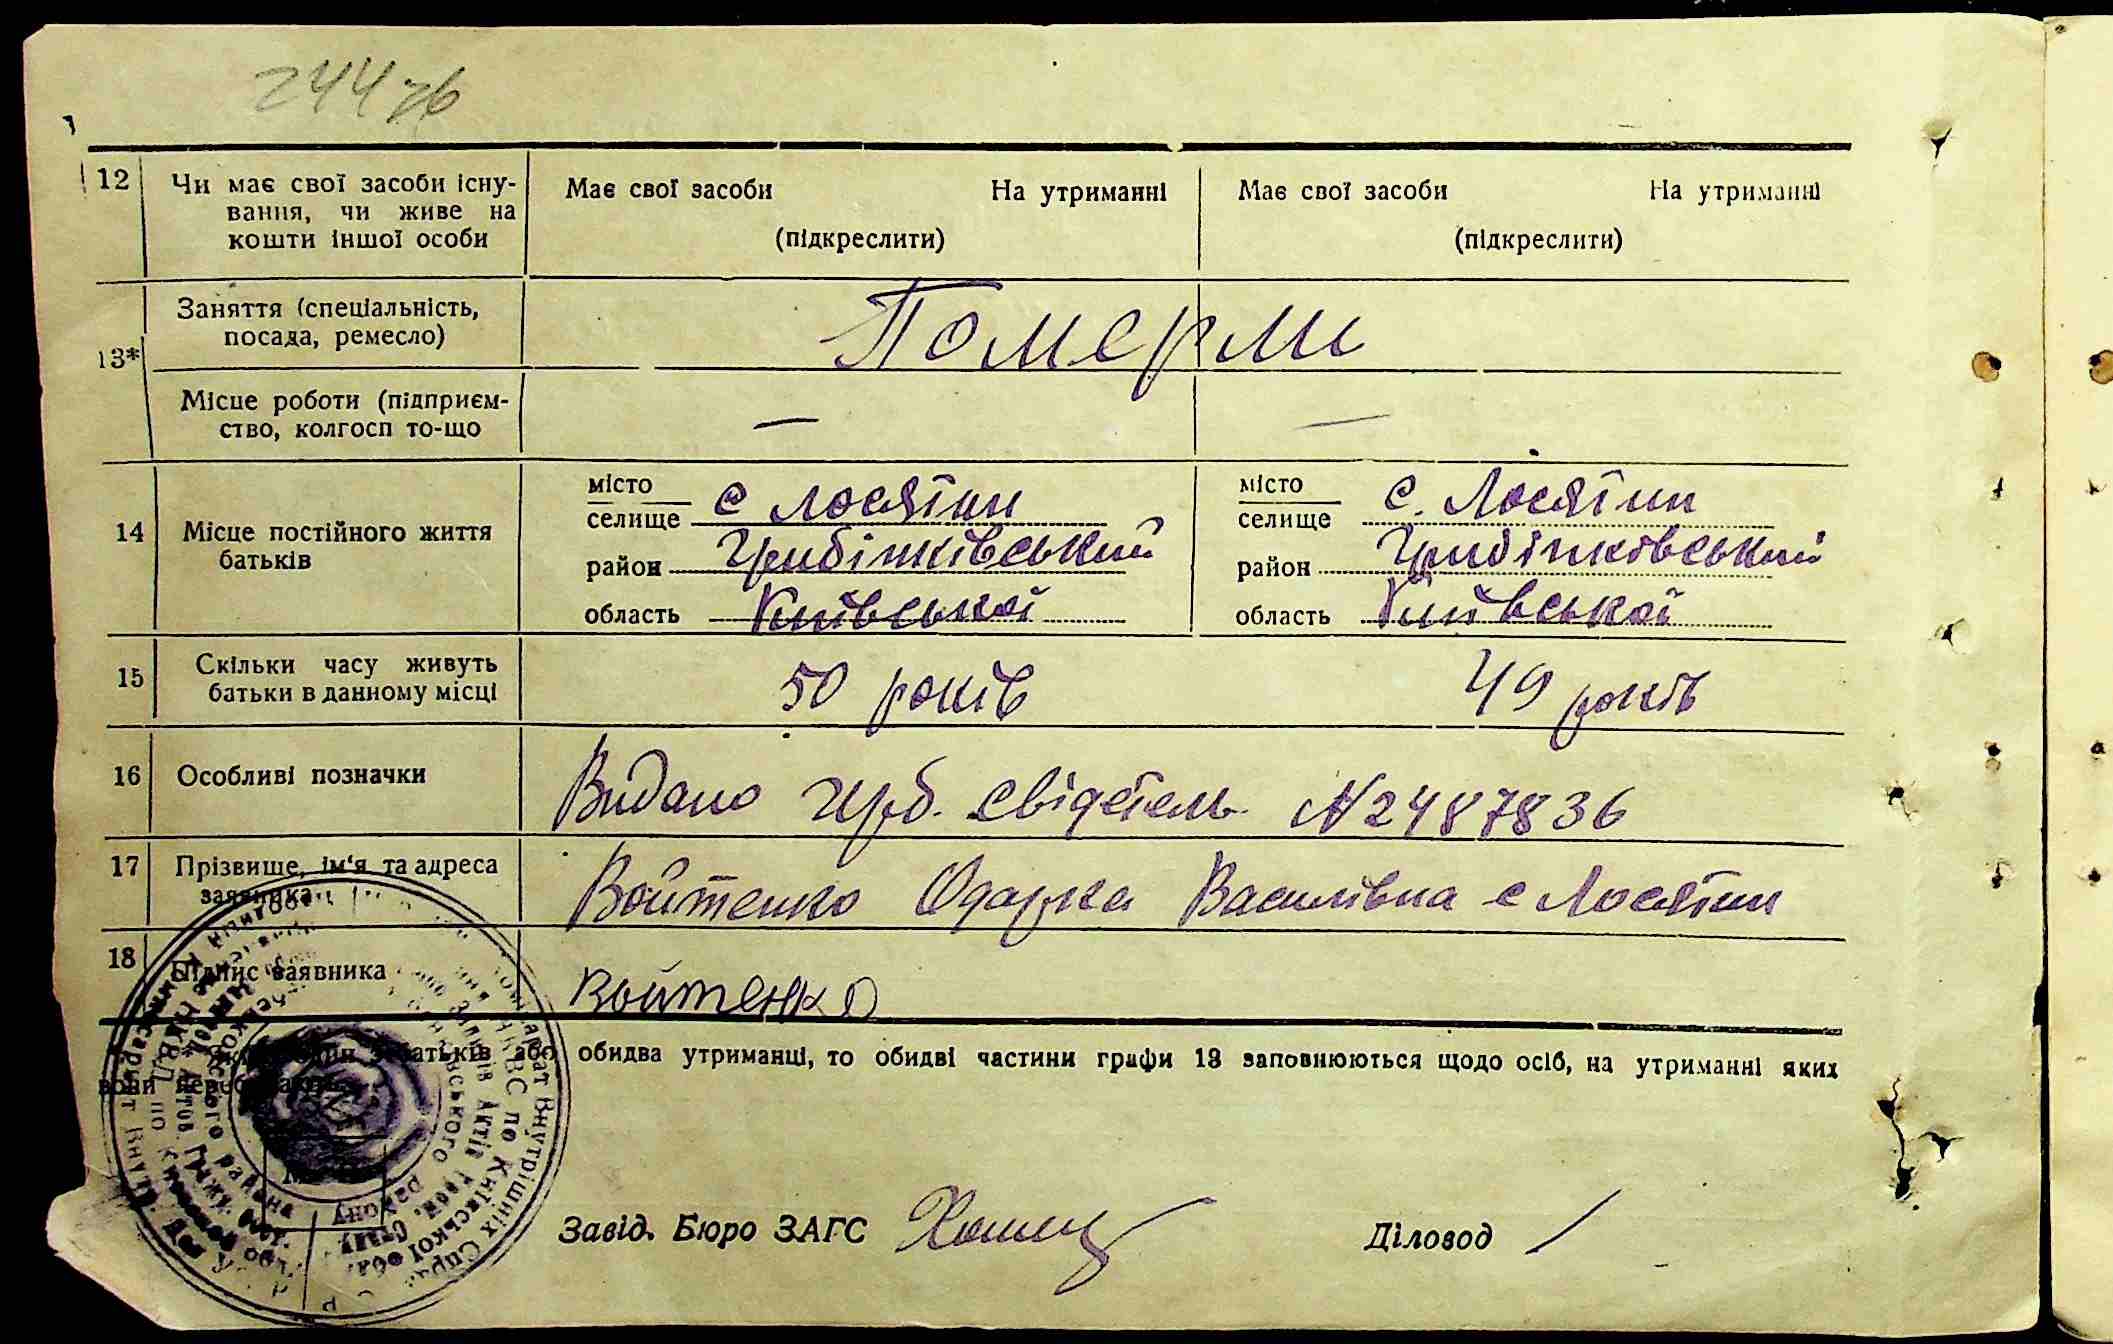 24476
12 Чи має свої засоби існу- Має свої засоби На утриманні Має свої засоби На утриманні
вання, чи живе на
кошти іншої особи (підкреслити) (підкреслити)
13* Заняття (спеціальність,
посада, ремесло) Померли
Місце роботи (підприєм- — —
ство, колгосп то-що
14 Місце постійного життя
батьків
місто
селище с Лосятин
район Гребінківський
область Київської
місто
селище с. Лосятин
район Гребінківський
область Київської
15 Скільки часу живуть
батьки в данному місці 50 років 49 років
16 Особливі позначки Видано Герб. свідетель. N2487836
17 Прізвище, ім'я та адреса
заявника Войтенко Одарка Василівна с Лосятин
18 Підпис заявника Войтенко
батьків або обидва утриманці, то обидві частини графи 13 заповнюються щодо осіб, на утриманні яких
вони
Завід. Бюро ЗАГС Діловод